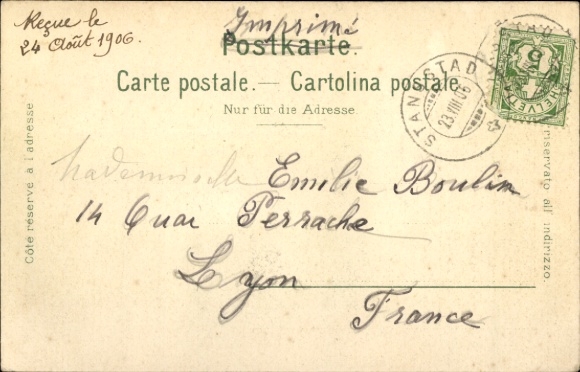 Reçue le
24 Août 1906.
Imprimé
Postkarte.
Carte postale. — Cartolina postale.
Nur für die Adresse.
STANSSTAD
23.VIII.06
HELVETIA
5
Côté réservé à l'adresse
riservato all' indirizzo
Mademoiselle Emilie Boulin
14 Quai Perrache
Lyon
France